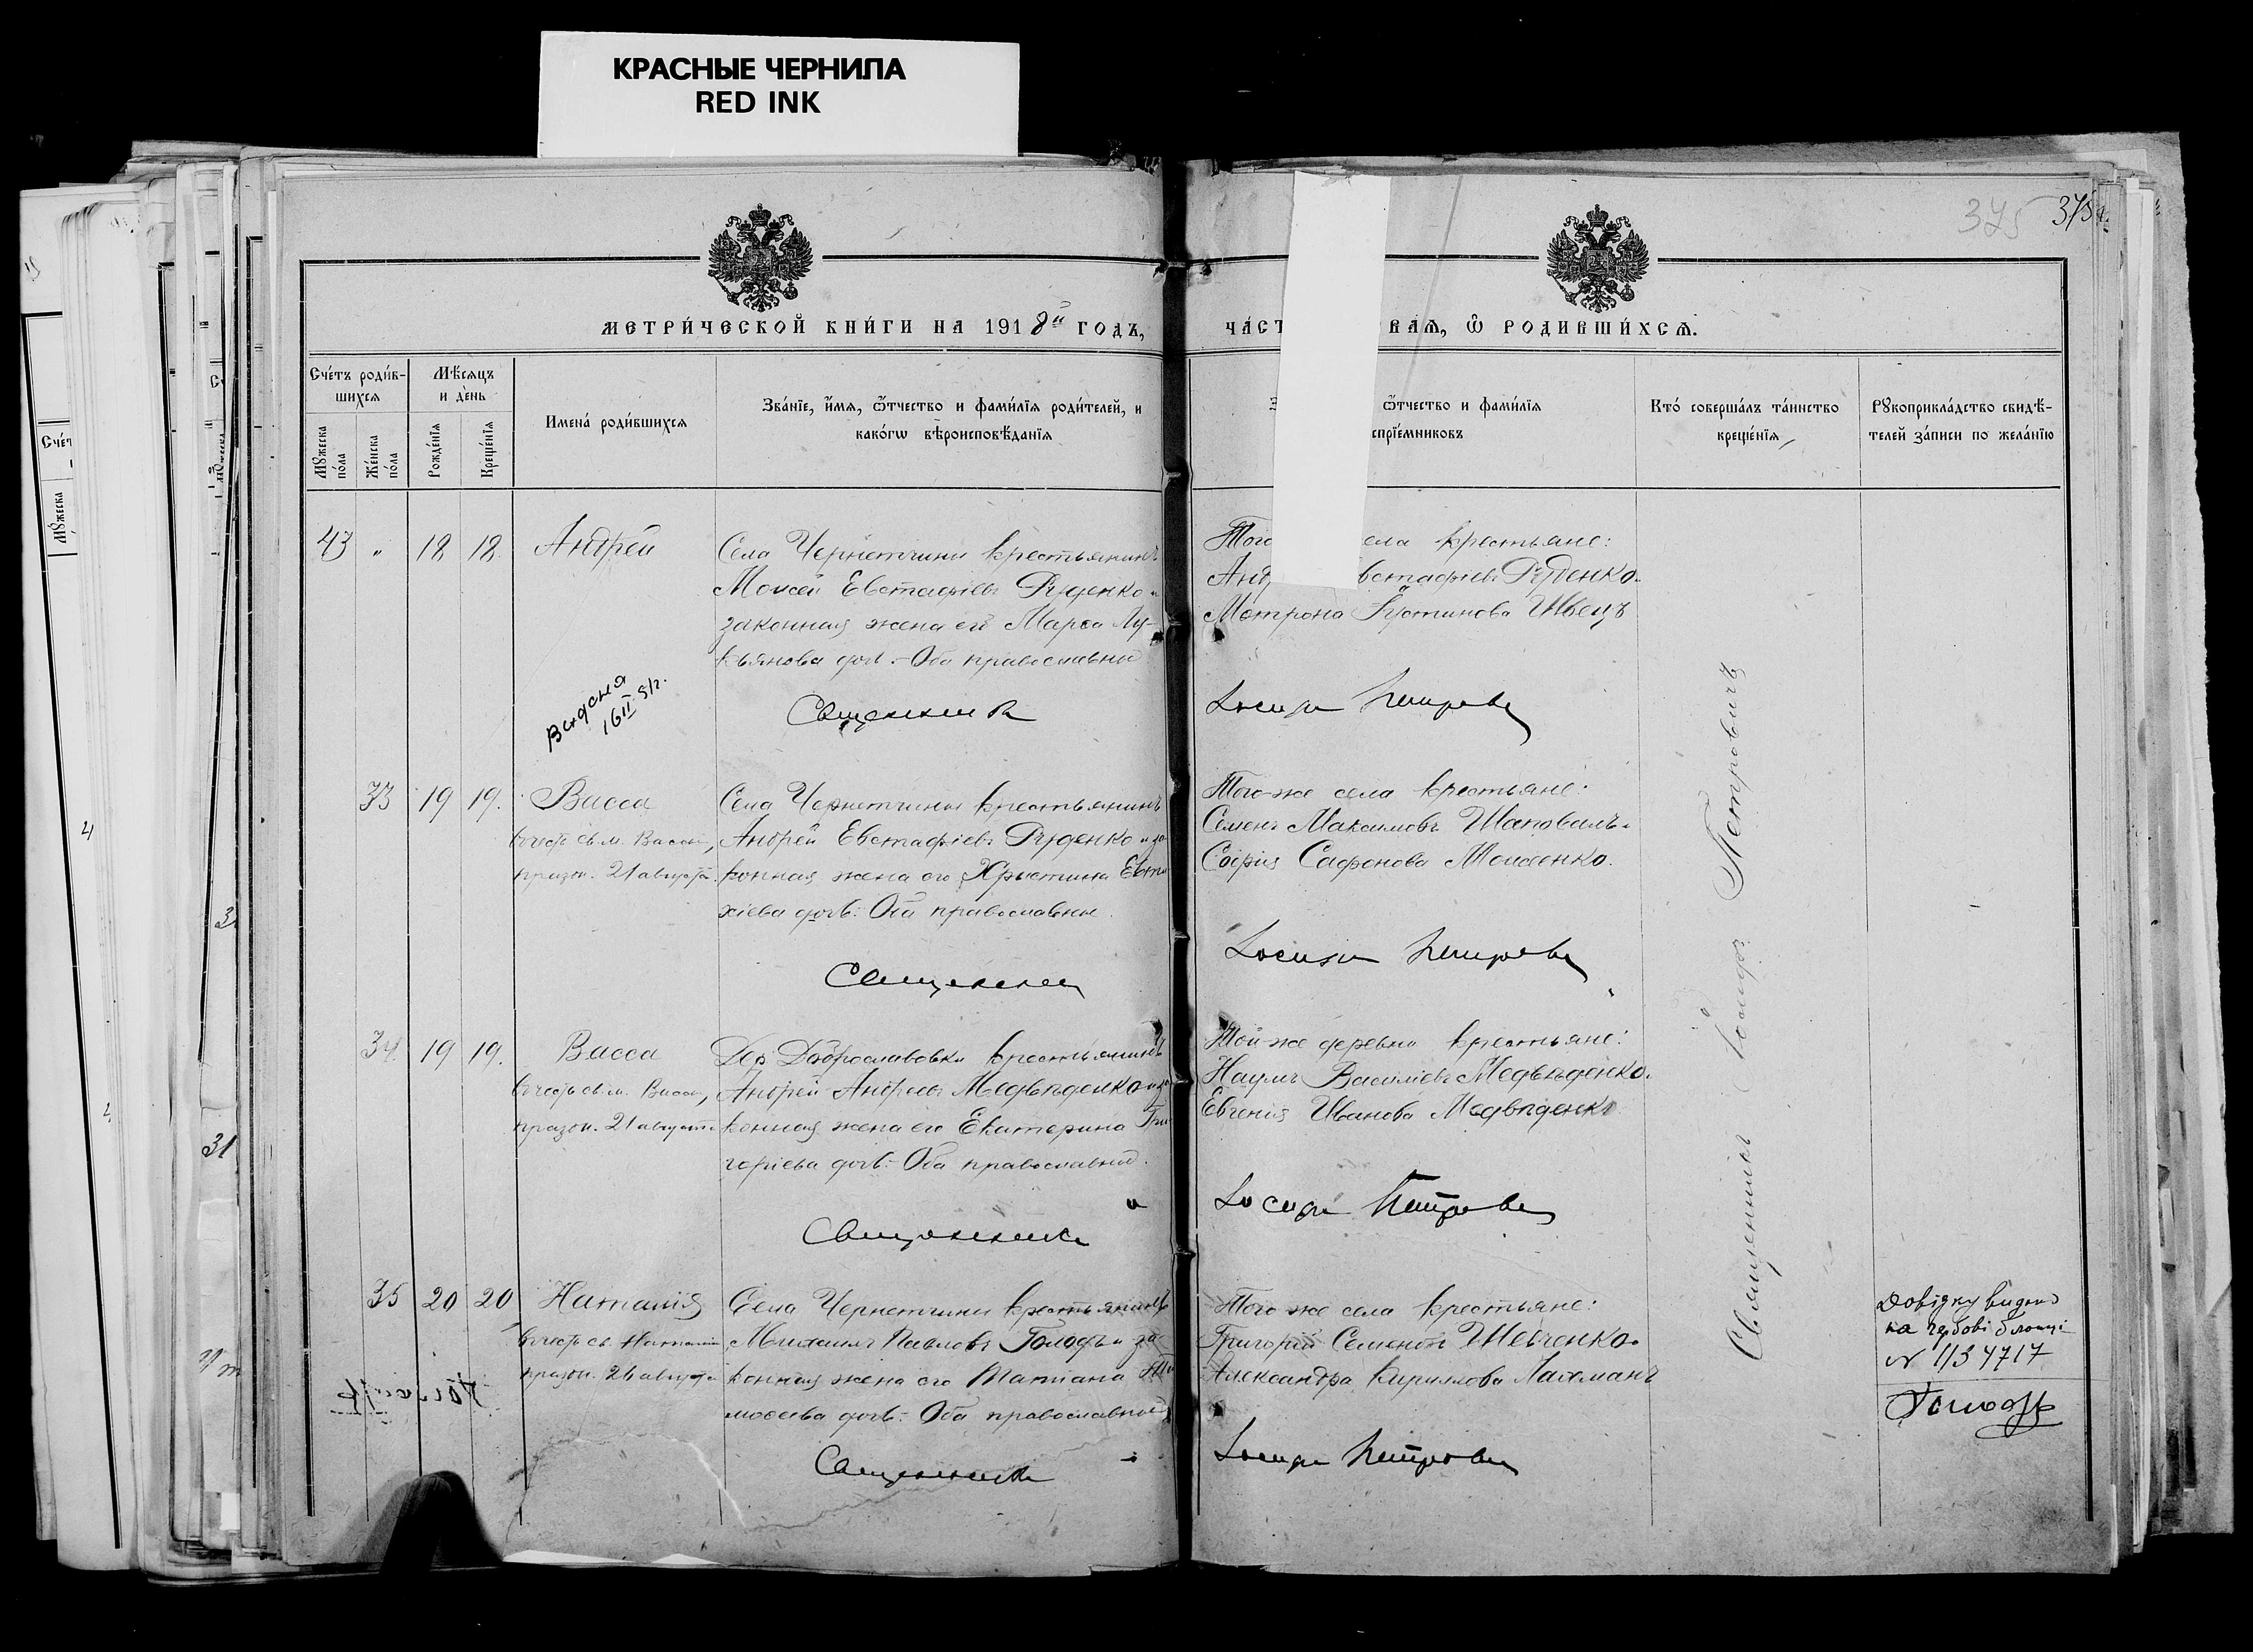 КРАСНЫЕ ЧЕРНИЛА
RED INK
375
МЕТРИ́ЧЕСКОЙ КНИ́ГИ НА 1918й ГОДЪ,
ЧА́СТ ВАѦ, Ѡ҆ РОДИВШИ́ХСѦ.
Сче́тъ роди́в-
шихсѧ
Мѣ́сѧцъ
и де́нь
Мꙋ́жеска
по́ла
Же́нска
по́ла
Рожде́нїѧ
Креще́нїѧ
Имена́ роди́вшихсѧ
Зва́нїе, и҆́мѧ, ѻ҆́тчество и фами́лїѧ роди́телей, и
како́гѡ вѣроисповѣ́данїѧ
ѻ҆́тчество и фами́лїѧ
спрїе́мниковъ
Кто́ соверша́лъ та́инство
креще́нїѧ
Рꙋкоприкла́дство свидѣ́-
телей за́писи по жела́нїю
43 " 18 18. Андрей
Села Чернетчины крестьянинъ
Моисей Евстафіевъ Руденко и
законная жена его Марѳа Лу-
кьянова доч. - Оба православные
Того ела крестьяне:
Анд встафіевъ Руденко.
Матрона Іустинова Швецъ
Выдсня
16 II 51г.
Священникъ
Іосифъ Петровичъ
33 19 19. Васса
въ честь св. м. Вассы,
празд. 21 августа.
Села Чернетчины крестьянинъ
Андрей Евстафіевъ Руденко и за-
конная жена его Христина Евти-
хіева доч. Оба православные.
Того-же села крестьяне:
Семенъ Максимовъ Шаповалъ.
Софія Сафонова Моисеенко.
Священникъ
Іосифъ Петровичъ
34 19 19. Васса
въ честь св. м. Вассы,
празд. 21 августа
Дер. Доброславовки крестьянинъ
Андрей Андреевъ Медвѣденко и за-
конная жена его Екатерина Гри-
горіева доч. - Оба православные.
Той-же деревни крестьяне:
Наумъ Василіевъ Медвѣденко.
Евгенія Иванова Медвѣденко
Священникъ
Іосифъ Петровичъ
35 20 20 Наталія
въ честь св. Наталіи
празд. 26 августа
Села Чернетчины крестьянинъ
Михаилъ Павловъ Голодъ и за-
конная жена его Татіана Ти-
моѳеева доч. - Оба православные
Того-же села крестьяне:
Григорій Семеновъ Шевченко.
Александра Кириллова Лахманъ
Священникъ
Іосифъ Петровичъ
Священникъ Іосифъ Петровичъ
Довідку видано
на гербові бланці
№ 1134717